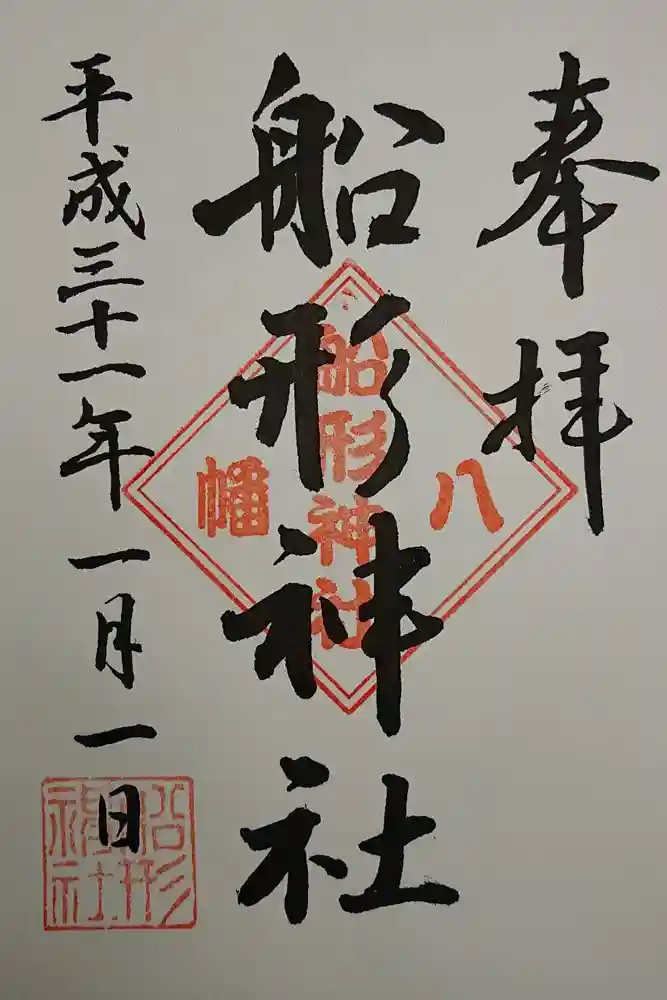 奉拝
八
船形神社
幡
船形神社
平成三十一年一月一日
船形
神社